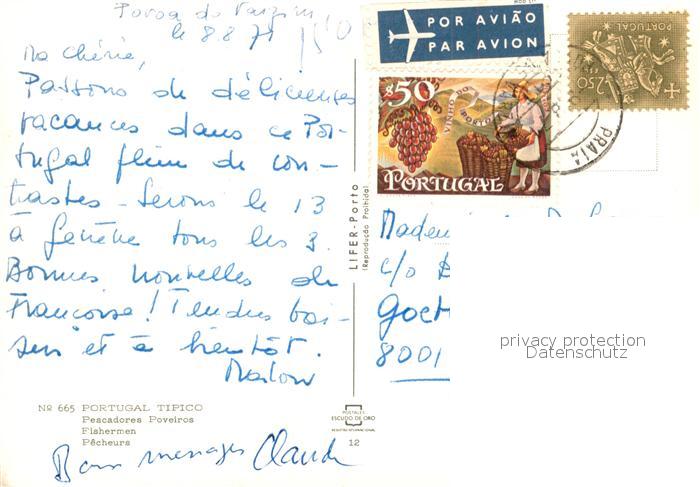 Povoa do Varzim
le 8.8.71
Ma Chérie,
Passons de délicieuses
vacances dans ce Por-
tugal plein de con-
trastes - Serons le 13
à Genève tous les 3.
Bonnes nouvelles de
Françoise! Tendres bai-
sers et à bientôt.
Bons messages Claude
Nº 665 PORTUGAL TIPICO
Pescadores Poveiros
Fishermen
Pêcheurs
LIFER-Porto
(Reprodução Proibida)
POSTALES
ESCUDO DE ORO
12
POR AVIÃO
PAR AVION
$50
VINHO DO PORTO
PORTUGAL
PORTUGAL
2$50
PRAIA
c/o
8001
privacy protection
Datenschutz